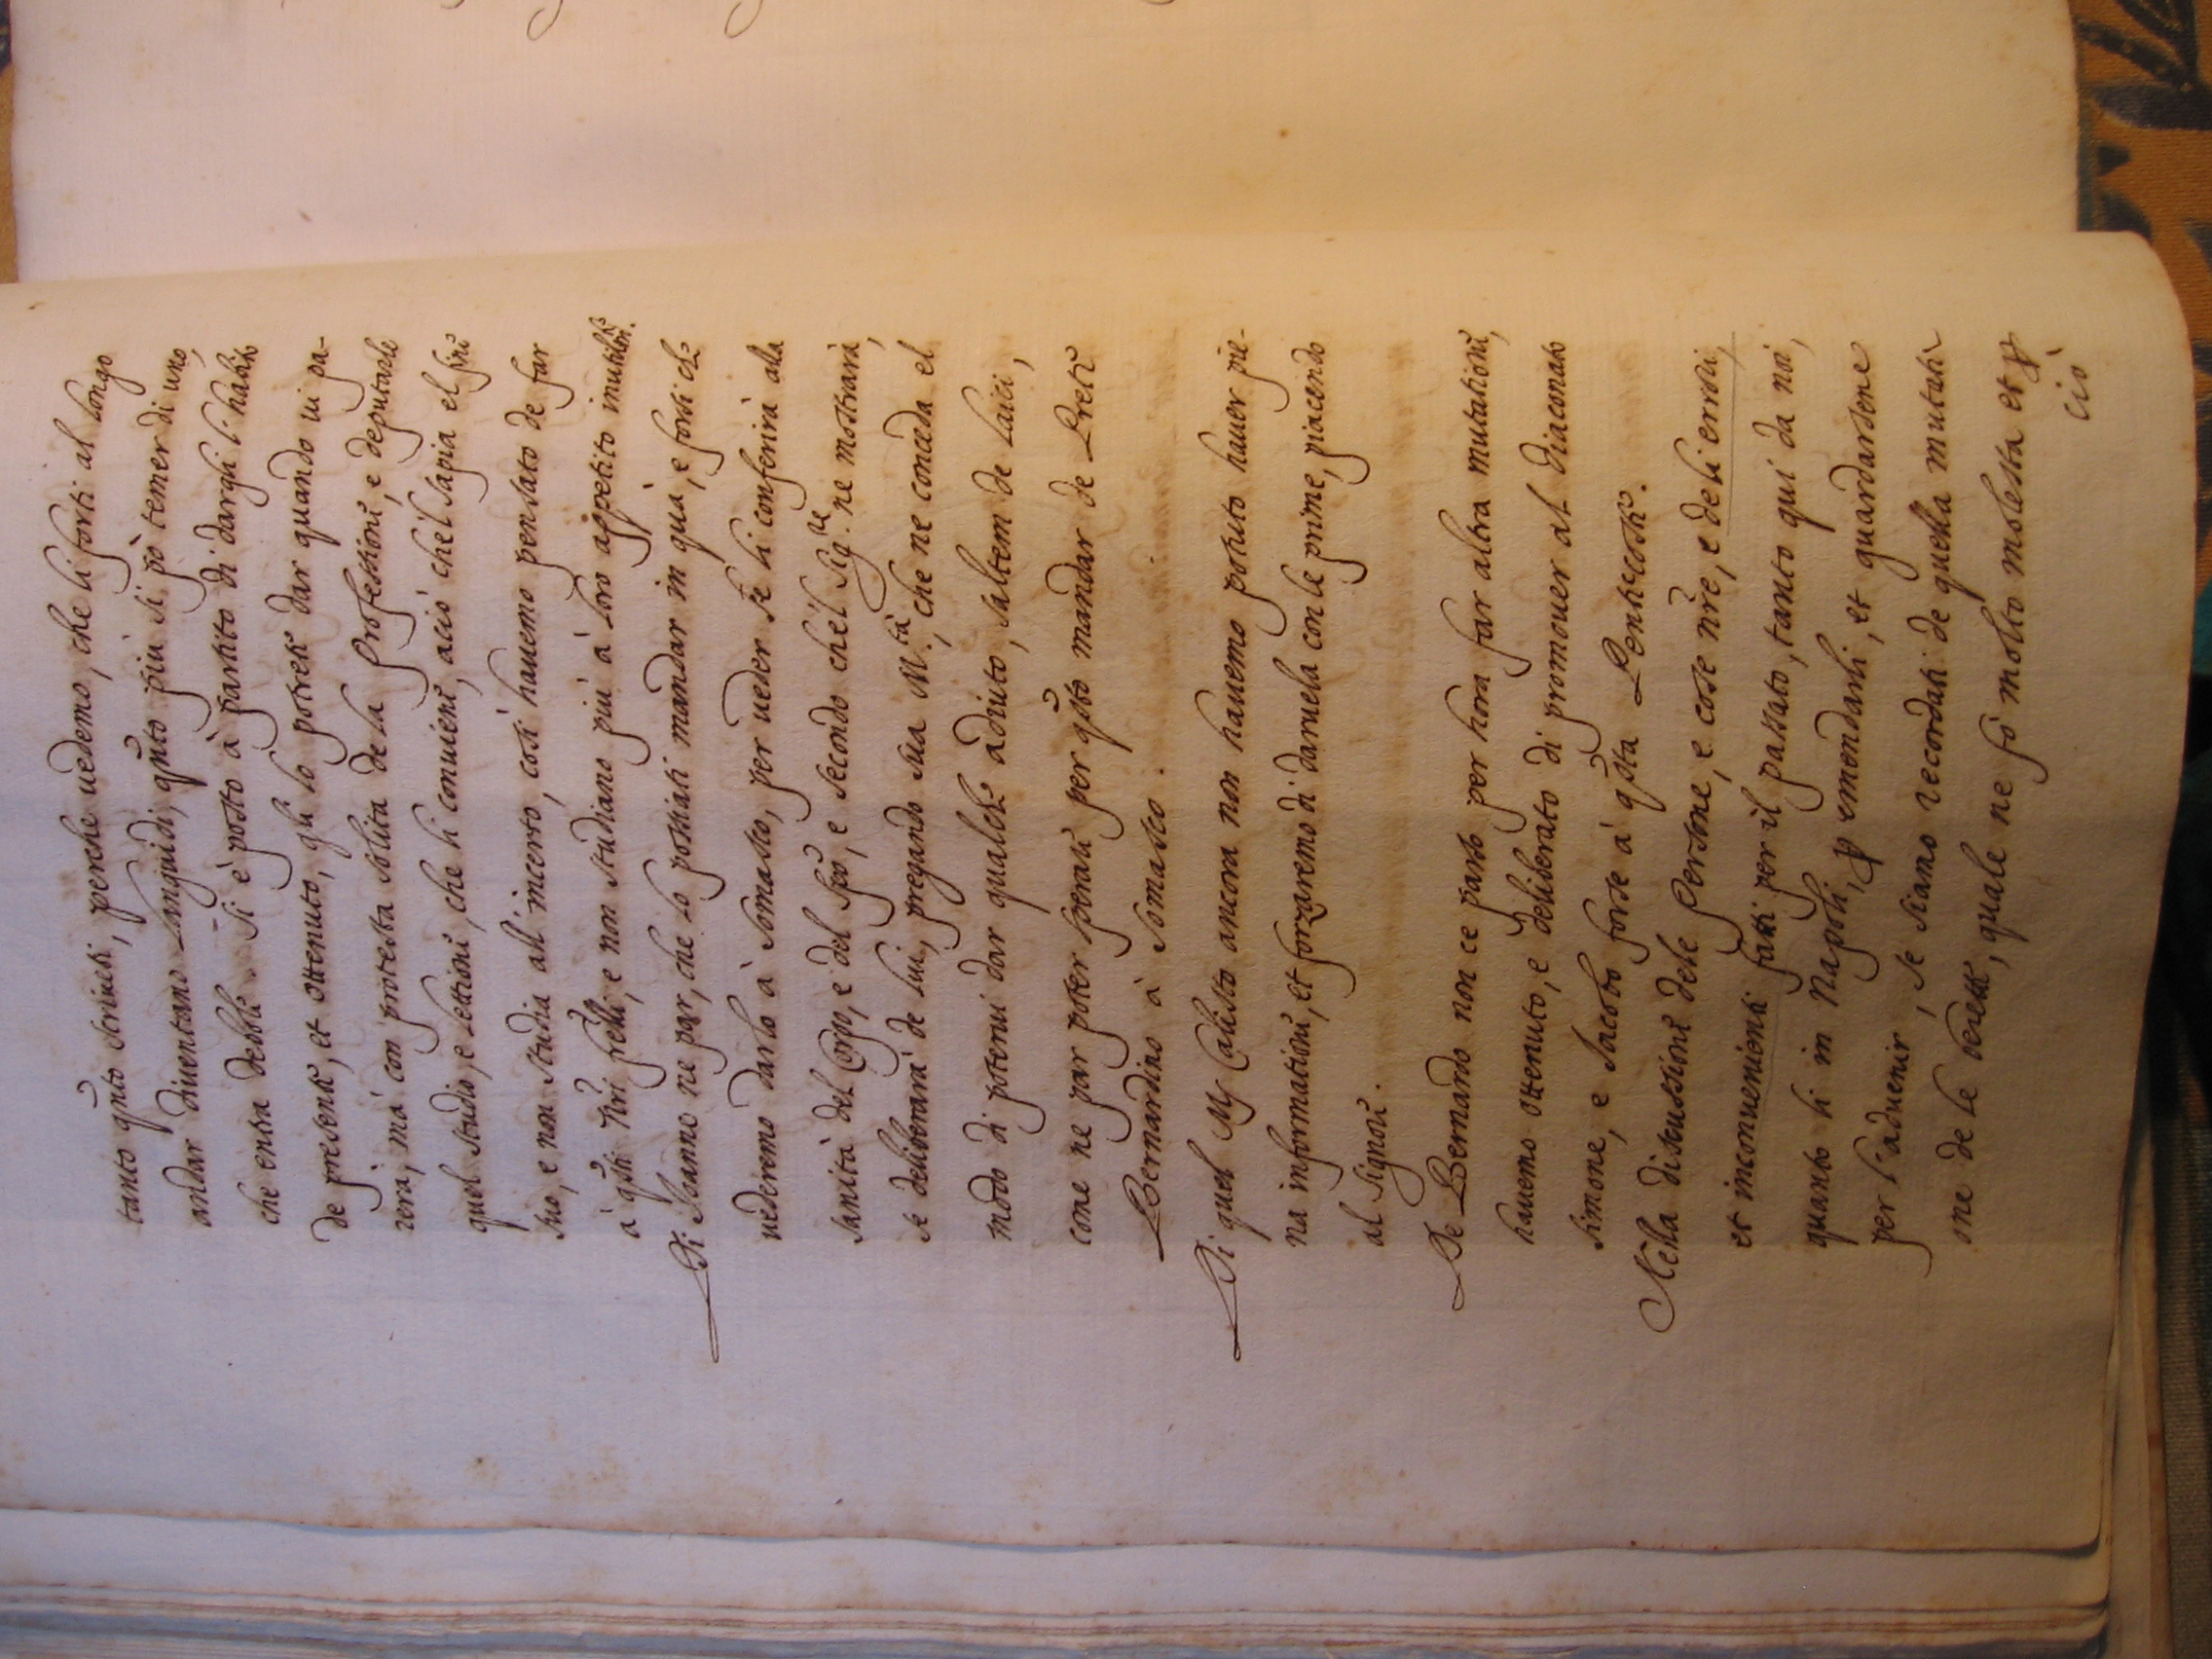 tanto q̃nto scriveti, perche uedemo, che li forti al longo
andar diuentano languidi, q̃nto più si pò temer di uno,
che entra debole. Si è posto à partito di dargli l'habito
de presente, et ottenuto, q̃li lo potreti dar quando ui pa-
rerà, mà con protesta solita de la professione, e deputarli
quel studio, e lettioni, che li conuiene, aciò che'l sapia el fine
suo, e non studia all'incerto, così hauemo pensato de far
à q̃sti Nr̃i frelli, e non studiano più à loro appetito inutilm.te
Di Joanne ne par, che lo possiati mandar in quà, e forsi che
uederemo darlo à Somasco, per ueder se li conferirà alla
sanità del Corpo, e del Spõ, e secondo che'l Sig.re ne mostrarà,
se deliberarà de lui, pregando sua M.tà, che ne conceda el
modo di poterui dar qualche adiuto, saltem de Laici,
come ne par poter sperati per q̃sto mandar de Preti
Bernardino à Somasco.
Di quel M. Calisto ancora non hauemo potuto hauer pie-
na informatione, et forzaremo di daruela con le prime, piacendo
al Signore.
De Bernardo non ce parso per hora far altra mutatione,
hauemo ottenuto, e deliberato di promouer al Diaconato
Simone, e Jacobo forse à q̃sta Pentecoste.
Nella discussione dele Persone, e cose nr̃e, e deli errori,
et inconuenienti fatti per il passato, tanto qui da noi,
quanto li in Napoli, ꝑ emendarli, et guardarsene
per l'aduenir, se siamo recordati de quella mutati-
one de le berette, quale ne fò molto molesta et ꝑ
ciò